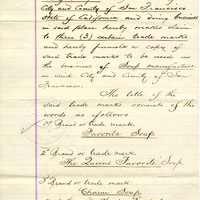 City and County of San Francisco
State of California and doing business
in said place hereby makes claim
to three (3) certain trade marks
and hereby furnish a copy of
said trade marks to be used in
the business of Soap manufacture
in said City and County of San
Francisco.
The title of the
said trade marks consists of the
words as follows
1st Brand or trade mark.
Favorite Soap.
2d Brand or trade mark.
The Queens Favorite Soap.
3rd Brand or trade mark.
Charm Soap.